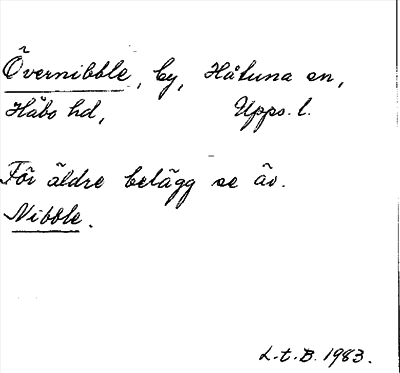 Övernibble, by, Håtuna sn,
Håbo hd, Upps. l.
För äldre belägg se äv.
Nibble.
L.t.B. 1983.